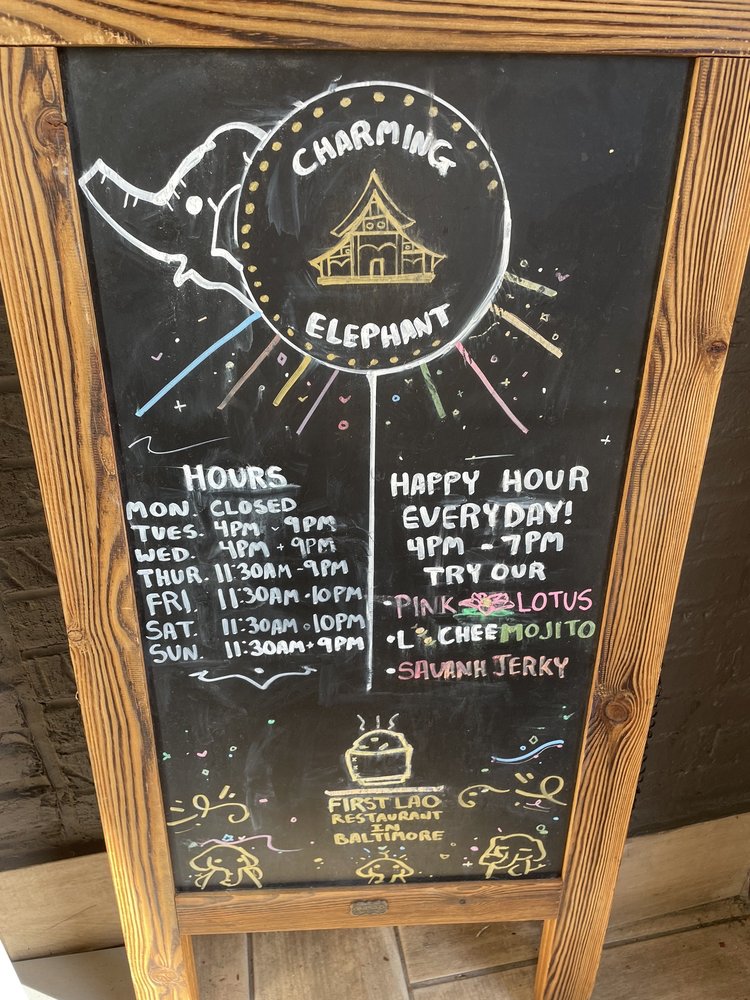 CHARMING
ELEPHANT
HOURS
MON. CLOSED
TUES. 4PM - 9PM
WED. 4PM - 9PM
THUR. 11:30AM - 9PM
FRI. 11:30AM - 10PM
SAT. 11:30AM - 10PM
SUN. 11:30AM - 9PM
HAPPY HOUR
EVERYDAY!
4PM - 7PM
TRY OUR
• PINK LOTUS
• LYCHEE MOJITO
• SAVANH JERKY
FIRST LAO
RESTAURANT
IN
BALTIMORE